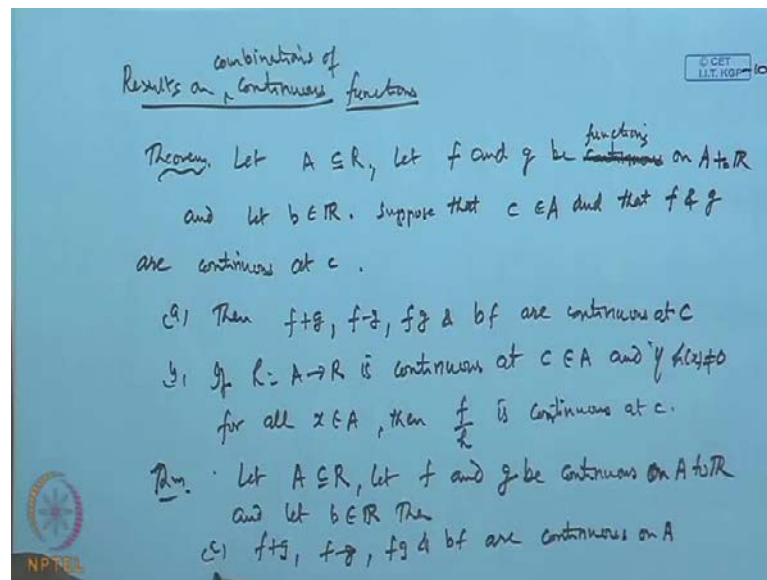 combinations of
Results on continuous functions
© CET
I.I.T. KGP
10
functions
Theorem. Let A ⊆ R, Let f and g be continuous on A to R
and let b ∈ R. Suppose that c ∈ A and that f & g
are continuous at c.
(a) Then f+g, f-g, fg & bf are continuous at c
If h: A→R is continuous at c ∈ A and if h(x)≠0
for all x ∈ A, then f/h is continuous at c.
Let A ⊆ R, let f and g be continuous on A to R
and let b ∈ R Then
f+g, f-g, fg & bf are continuous on A
NPTEL